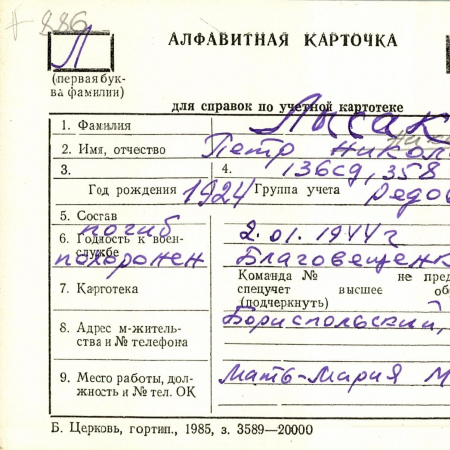 # 886
Л
АЛФАВИТНАЯ КАРТОЧКА
(первая бук-
ва фамилии)
для справок по учетной картотеке
1. Фамилия Лысак
2. Имя, отчество Петр Никол
3. 4. 136сд, 358
Год рождения 1924 Группа учета рядо
5. Состав
погиб 2.01.1944г
6. Годность к воен-
службе
похоронен Благовещенк
Команда № не пред
спецучет высшее об
(подчеркнуть)
7. Картотека
8. Адрес м-житель-
ства и № телефона
Бориспольский,
9. Место работы, дол-
жность и № тел. ОК
Мать-Мария М
Б. Церковь, гортип., 1985, з. 3589—20000